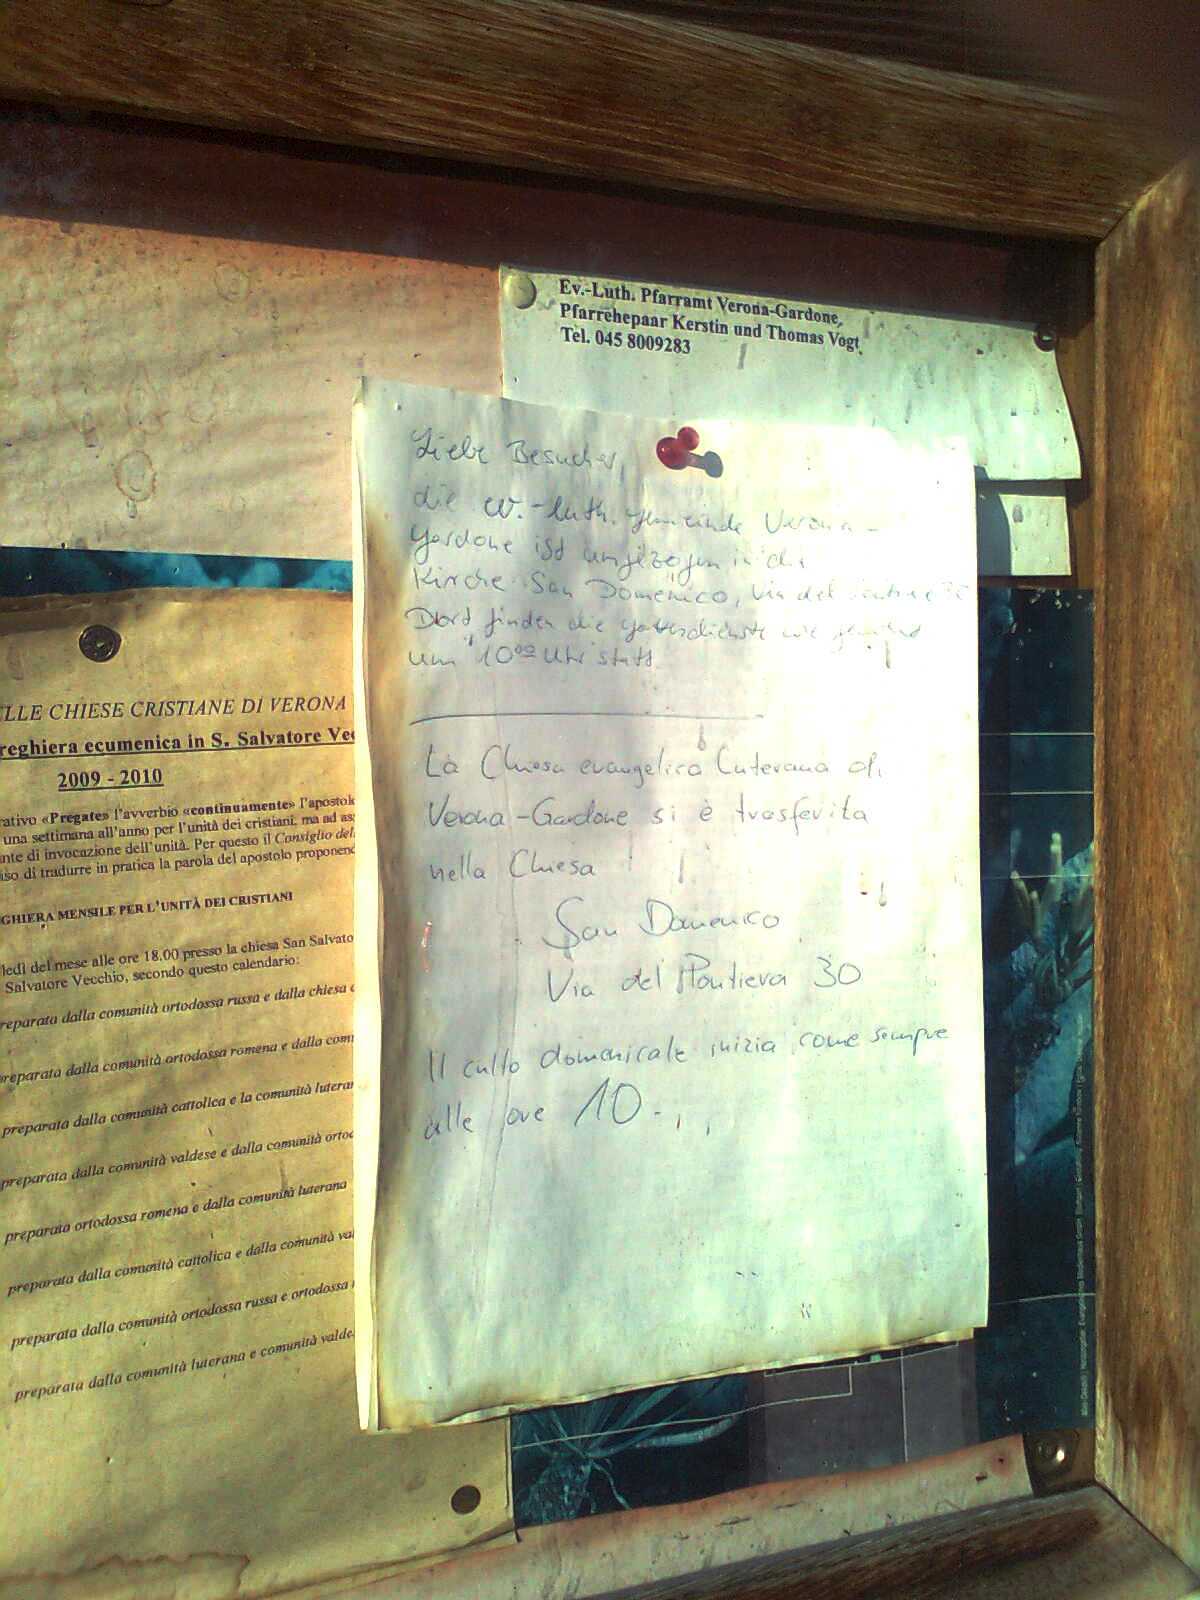 Ev.-Luth. Pfarramt Verona-Gardone,
Pfarrehepaar Kerstin und Thomas Vogt
Tel. 045 8009283
Liebe Besucher,
die ev.-luth. Gemeinde Verona-
Gardone ist umgezogen in die
Kirche San Domenico, Via del
Dort finden die Gottesdienste wie gewohnt
um 10⁰⁰ Uhr statt.
La Chiesa evangelica Luterana di
Verona-Gardone si è trasferita
nella Chiesa
San Domenico
Via del Pontiera 30
Il culto domenicale inizia come sempre
alle ore 10.
ELLE CHIESE CRISTIANE DI VERONA
reghiera ecumenica in S. Salvatore Vec
2009 - 2010
rativo «Pregate» l'avverbio «continuamente» l'apostol
una settimana all'anno per l'unità dei cristiani, ma ad as
nte di invocazione dell'unità. Per questo il Consiglio del
so di tradurre in pratica la parola del apostolo proponend
GHIERA MENSILE PER L'UNITÀ DEI CRISTIANI
ledì del mese alle ore 18.00 presso la chiesa San Salvato
Salvatore Vecchio, secondo questo calendario:
reparata dalla comunità ortodossa russa e dalla chiesa
preparata dalla comunità ortodossa romena e dalla com
preparata dalla comunità cattolica e la comunità luteran
preparata dalla comunità valdese e dalla comunità ortod
preparata ortodossa romena e dalla comunità luterana
preparata dalla comunità cattolica e dalla comunità val
preparata dalla comunità ortodossa russa e ortodossa
preparata dalla comunità luterana e comunità valde